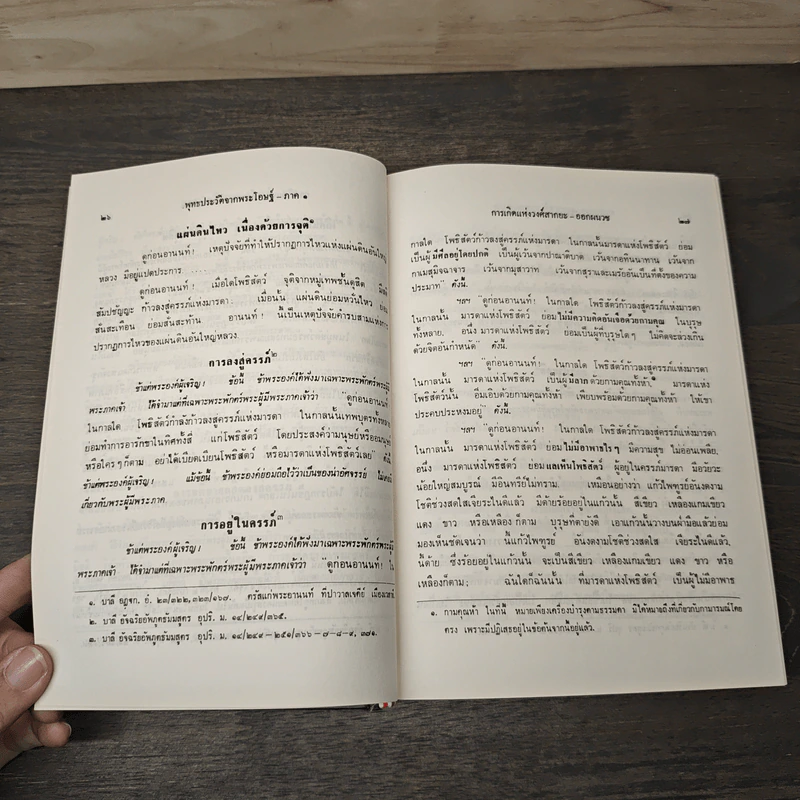 ๒๖
พุทธประวัติจากพระโอษฐ์ – ภาค ๑
แผ่นดินไหว เนื่องด้วยการจุติ๑
ดูก่อนอานนท์! เหตุปัจจัยที่ทำให้ปรากฏการไหวแห่งแผ่นดินอันใหญ่
หลวง มีอยู่แปดประการ
ดูก่อนอานนท์! เมื่อใดโพธิสัตว์ จุติจากหมู่เทพชั้นดุสิต มีสติ
สัมปชัญญะ ก้าวลงสู่ครรภ์แห่งมารดา; เมื่อนั้น แผ่นดินย่อมหวั่นไหว ย่อม
สั่นสะเทือน ย่อมสั่นสะท้าน อานนท์! นี้เป็นเหตุปัจจัยคำรบสามแห่งการ
ปรากฏการไหวของแผ่นดินอันใหญ่หลวง.
การลงสู่ครรภ์๒
ข้าแต่พระองค์ผู้เจริญ! ข้อนี้ ข้าพระองค์ได้ฟังมาเฉพาะพระพักตร์พระผู้มี
พระภาคเจ้า ได้จำมาแต่ที่เฉพาะพระพักตร์พระผู้มีพระภาคเจ้าว่า "ดูก่อนอานนท์!
ในกาลใด โพธิสัตว์กำลังก้าวลงสู่ครรภ์แห่งมารดา ในกาลนั้นเทพบุตรทั้งหลาย
ย่อมทำการอารักขาในทิศทั้งสี่ แก่โพธิสัตว์ โดยประสงค์ว่ามนุษย์หรืออมนุษย์
หรือใคร ๆ ก็ตาม อย่าได้เบียดเบียนโพธิสัตว์ หรือมารดาแห่งโพธิสัตว์เลย" ดังนี้.
ข้าแต่พระองค์ผู้เจริญ! แม้ข้อนี้ ข้าพระองค์ย่อมถือไว้ว่าเป็นของน่าอัศจรรย์
เกี่ยวกับพระผู้มีพระภาค.
การอยู่ในครรภ์๓
ข้าแต่พระองค์ผู้เจริญ! ข้อนี้ ข้าพระองค์ได้ฟังมาเฉพาะพระพักตร์พระผู้มี
พระภาคเจ้า ได้จำมาแต่ที่เฉพาะพระพักตร์พระผู้มีพระภาคเจ้าว่า "ดูก่อนอานนท์! ใน
๑. บาลี อฏฺฐก. อํ. ๒๓/๓๒๒,๓๒๓/๑๖๗. ตรัสแก่พระอานนท์ ที่ปาวาลเจดีย์
๒. บาลี อัจฉริยอัพภูตธัมมสูตร อุปริ. ม. ๑๔/๒๔๙/๓๖๕.
๓. บาลี อัจฉริยอัพภูตธัมมสูตร อุปริ. ม. ๑๔/๒๔๙ – ๒๕๑/๓๖๖ – ๗ – ๘ – ๙, ๓๗๑.
การเกิดแห่งวงศ์สากยะ – ออกผนวช
๒๗
กาลใด โพธิสัตว์ก้าวลงสู่ครรภ์แห่งมารดา ในกาลนั้นมารดาแห่งโพธิสัตว์ ย่อม
เป็นผู้มีศีลอยู่โดยปกติ เป็นผู้เว้นจากปาณาติบาต เว้นจากอทินนาทาน เว้นจาก
กาเมสุมิจฉาจาร เว้นจากมุสาวาท เว้นจากสุราและเมรัยอันเป็นที่ตั้งของความ
ประมาท" ดังนี้.
ฯลฯ "ดูก่อนอานนท์! ในกาลใด โพธิสัตว์ก้าวลงสู่ครรภ์แห่งมารดา
ในกาลนั้น มารดาแห่งโพธิสัตว์ ย่อมไม่มีความคิดอันเจือด้วยกามคุณ ในบุรุษ
ทั้งหลาย. อนึ่ง มารดาแห่งโพธิสัตว์ ย่อมเป็นผู้ที่บุรุษใด ๆ ไม่คิดจะล่วงเกิน
ด้วยจิตอันกำหนัด" ดังนี้.
ฯลฯ "ดูก่อนอานนท์! ในกาลใด โพธิสัตว์ก้าวลงสู่ครรภ์แห่งมารดา
ในกาลนั้น มารดาแห่งโพธิสัตว์ เป็นผู้มีลาภด้วยกามคุณทั้งห้า๑ มารดาแห่ง
โพธิสัตว์นั้น อิ่มเอิบด้วยกามคุณทั้งห้า เพียบพร้อมด้วยกามคุณทั้งห้า ให้เขา
ประคบประหงมอยู่" ดังนี้.
ฯลฯ "ดูก่อนอานนท์! ในกาลใด โพธิสัตว์ก้าวลงสู่ครรภ์แห่งมารดา
ในกาลนั้น มารดาแห่งโพธิสัตว์ ย่อมไม่มีอาพาธใด ๆ มีความสุข ไม่อ่อนเพลีย.
อนึ่ง มารดาแห่งโพธิสัตว์ ย่อมแลเห็นโพธิสัตว์ ผู้อยู่ในครรภ์มารดา มีอวัยวะ
น้อยใหญ่สมบูรณ์ มีอินทรีย์ไม่ทราม. เหมือนอย่างว่า แก้วไพฑูรย์อันงดงาม
โชติช่วงสดใสเจียระไนดีแล้ว มีด้ายร้อยอยู่ในแก้วนั้น สีเขียว เหลืองแกมเขียว
แดง ขาว หรือเหลือง ก็ตาม บุรุษที่ตายังดี เอาแก้วนั้นวางบนฝ่ามือแล้วย่อม
มองเห็นชัดเจนว่า นี้แก้วไพฑูรย์ อันงดงามโชติช่วงสดใส เจียระไนดีแล้ว,
นี้ด้าย ซึ่งร้อยอยู่ในแก้วนั้น จะเป็นสีเขียว เหลืองแกมเขียว แดง ขาว หรือ
เหลืองก็ตาม; ฉันใดก็ฉันนั้น ที่มารดาแห่งโพธิสัตว์ เป็นผู้ไม่มีอาพาธ
๑. กามคุณห้า ในที่นี้ หมายเพียงเครื่องบำรุงตามธรรมดา มิได้หมายถึงที่เกี่ยวกับกามารมณ์โดย
ตรง เพราะมีปฏิเสธอยู่ในข้อต้นจากนี้อยู่แล้ว.